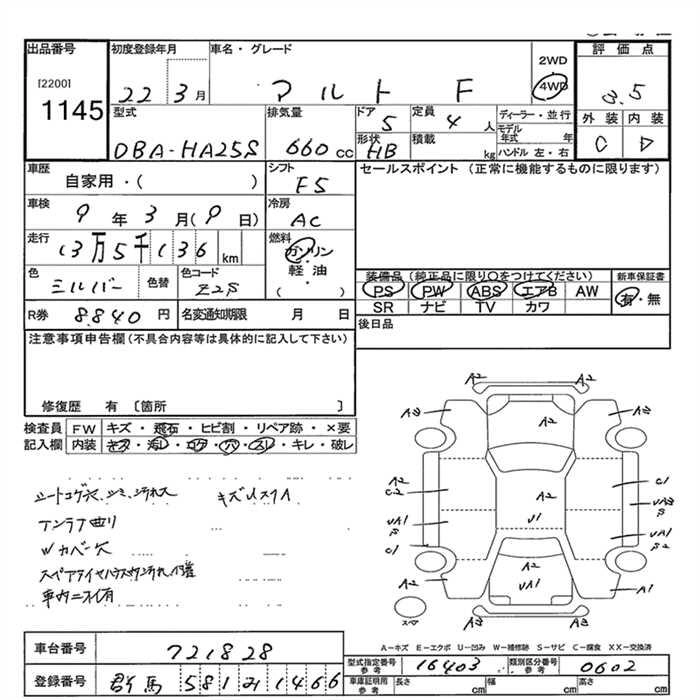 出品番号 初度登録年月 車名・グレード 評価点
[2200] 1145
22 3月 アルト F 2WD 4WD 3.5
型式 排気量 ドア 定員 ディーラー・並行 外装 内装
DBA-HA25S 660 cc 5 4 人 モデル年式 年 C D
形状 積載 ハンドル 左・右
HB kg
車歴 シフト セールスポイント(正常に機能するものに限ります)
自家用・( ) F5
車検 冷房
9年3月(9日) AC
走行 燃料
13万5千136 km ガソリン・軽油 ( ・ )
色 色替 色コード 装備品(純正品に限り○をつけてください) 新車保証書
シルバー Z2S PS PW ABS エアB AW 有・無
SR ナビ TV カワ
R券 8.840円 名変通知期限 月 日 後日品
注意事項申告欄(不具合内容等は具体的に記入して下さい)
修復歴 有 〔箇所 〕
検査員記入欄 FW キズ・飛石・ヒビ割・リペア跡・×要
内装 キズ・コゲ・穴・スレ・キレ・破レ
シートコゲ穴、シミ、汚れ大 キズUスリA
アンテナ曲り
Wカバー欠
車内ニオイ有
A2 A2 A3 A3 A2
A2 C2 A2 C1
UA1 S U1 UA3 S
C1 UA1 S2
A2 A2 UA1 A1
スペア A2 A3
A-キズ E-エクボ U-凹み W-補修跡 S-サビ C-腐食 XX-交換済
車台番号 721828
登録番号 群馬581み1466
型式指定番号 参考 16403 類別区分番号 参考 0602
車庫証明用 参考 長さ cm 幅 cm 高さ cm